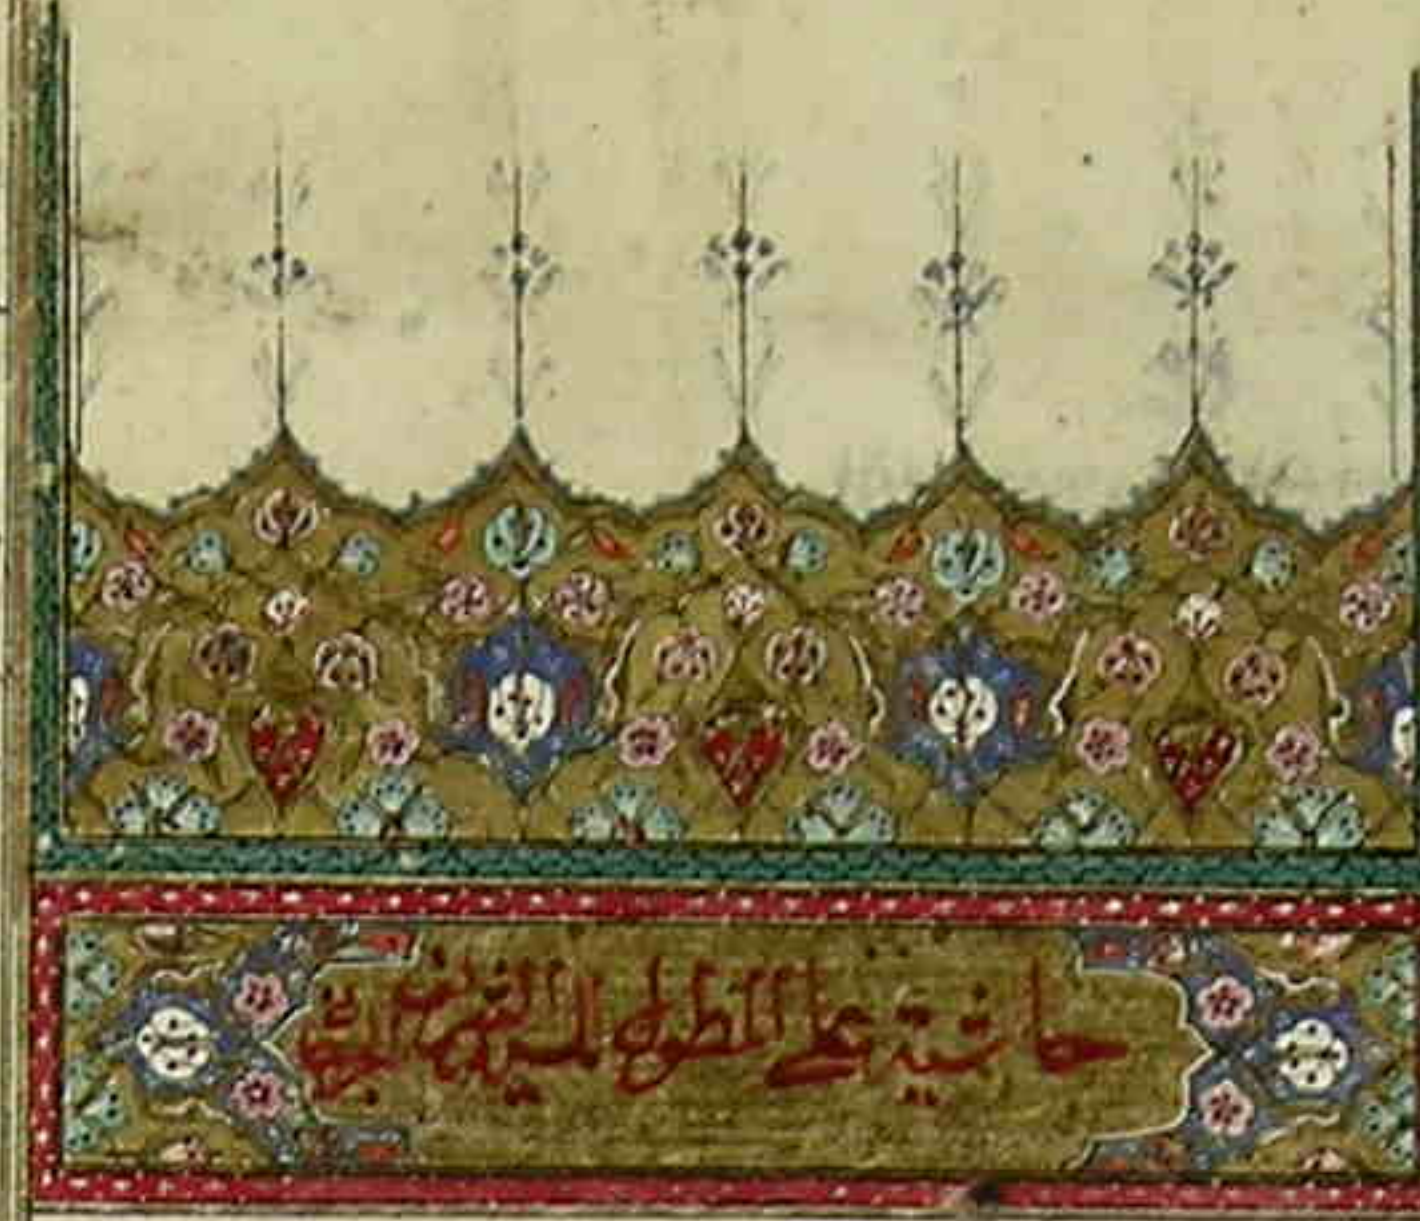 حاشية على المطول للسيد الشريف الجرجاني